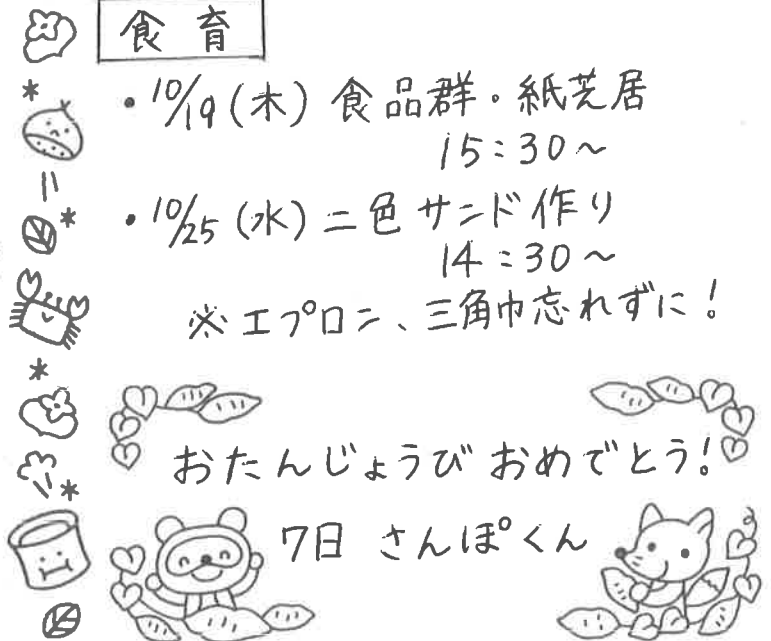 食育
・10/19(木)食品群。紙芝居
15:30~
・10/25(水)二色サンド作り
14:30~
※エプロン、三角巾忘れずに!
おたんじょうび おめでとう!
7日 さんぽくん